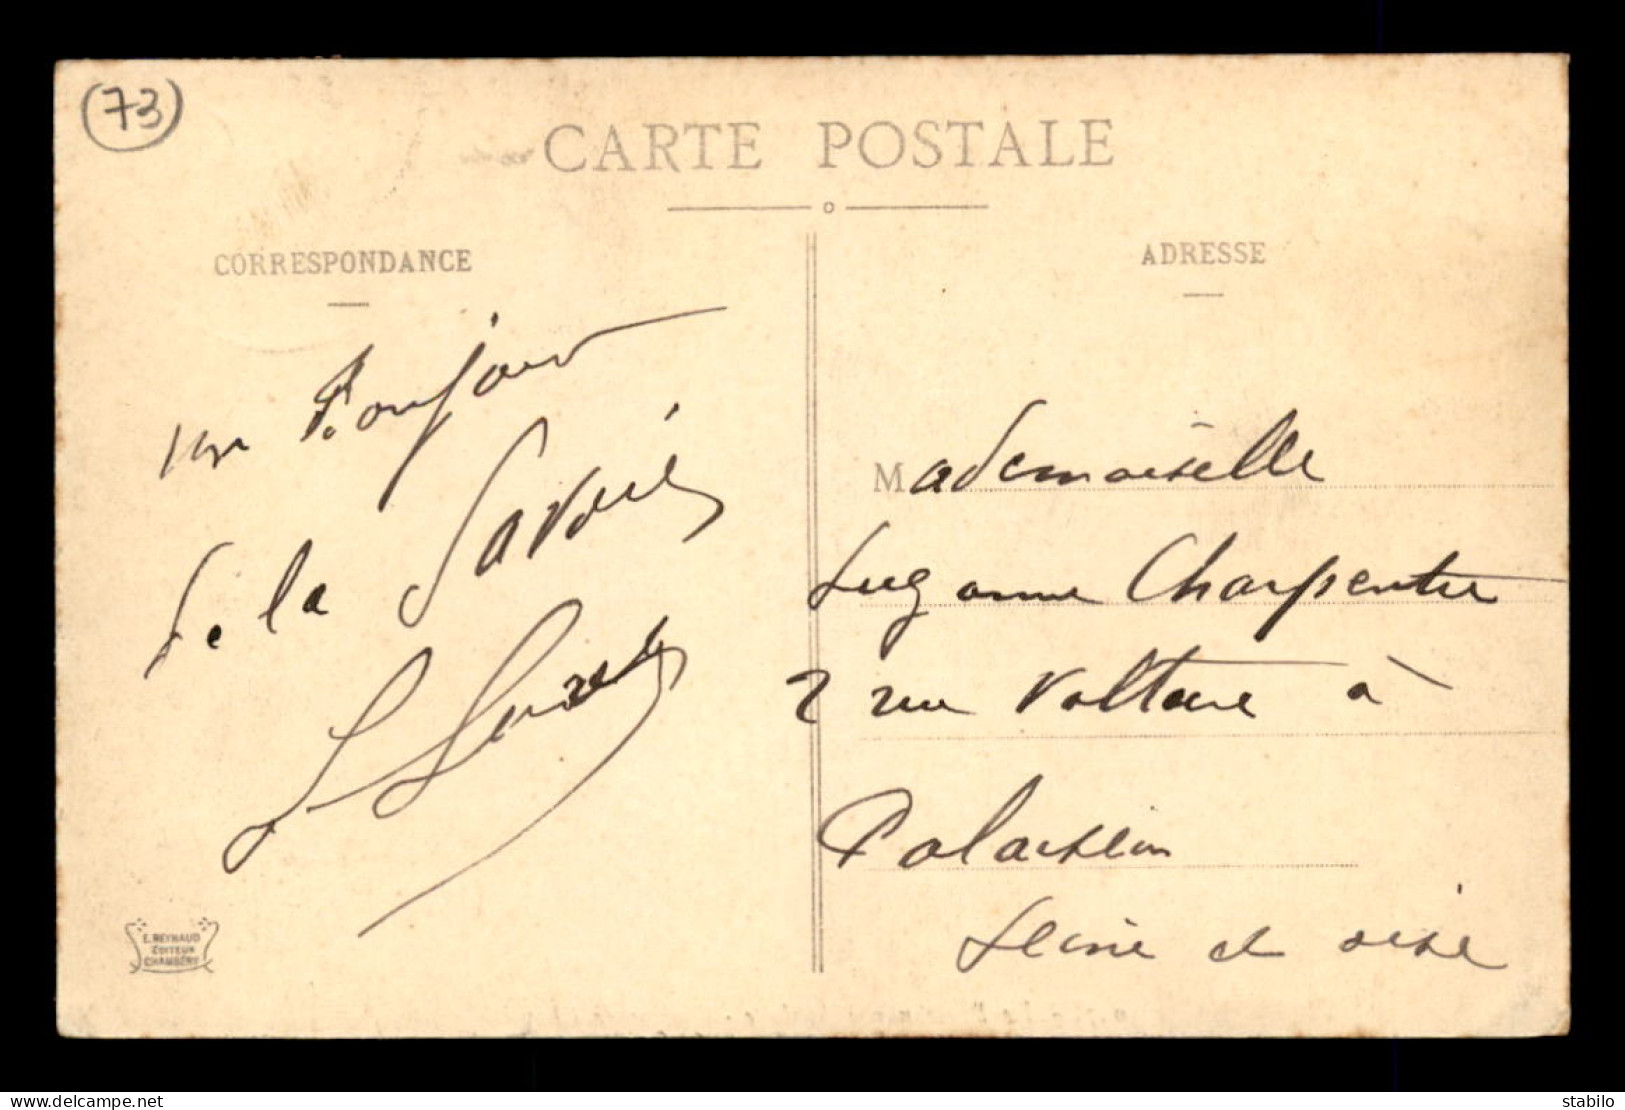 (73)
CARTE POSTALE
CORRESPONDANCE
un Bonjour
de la Savoie
E. REYNAUD
EDITEUR
CHAMBÉRY
ADRESSE
Mademoiselle
Suzanne Charpentier
2 rue Voltaire à
Palaiseau
Seine et oise
delcampe.net
stabilo